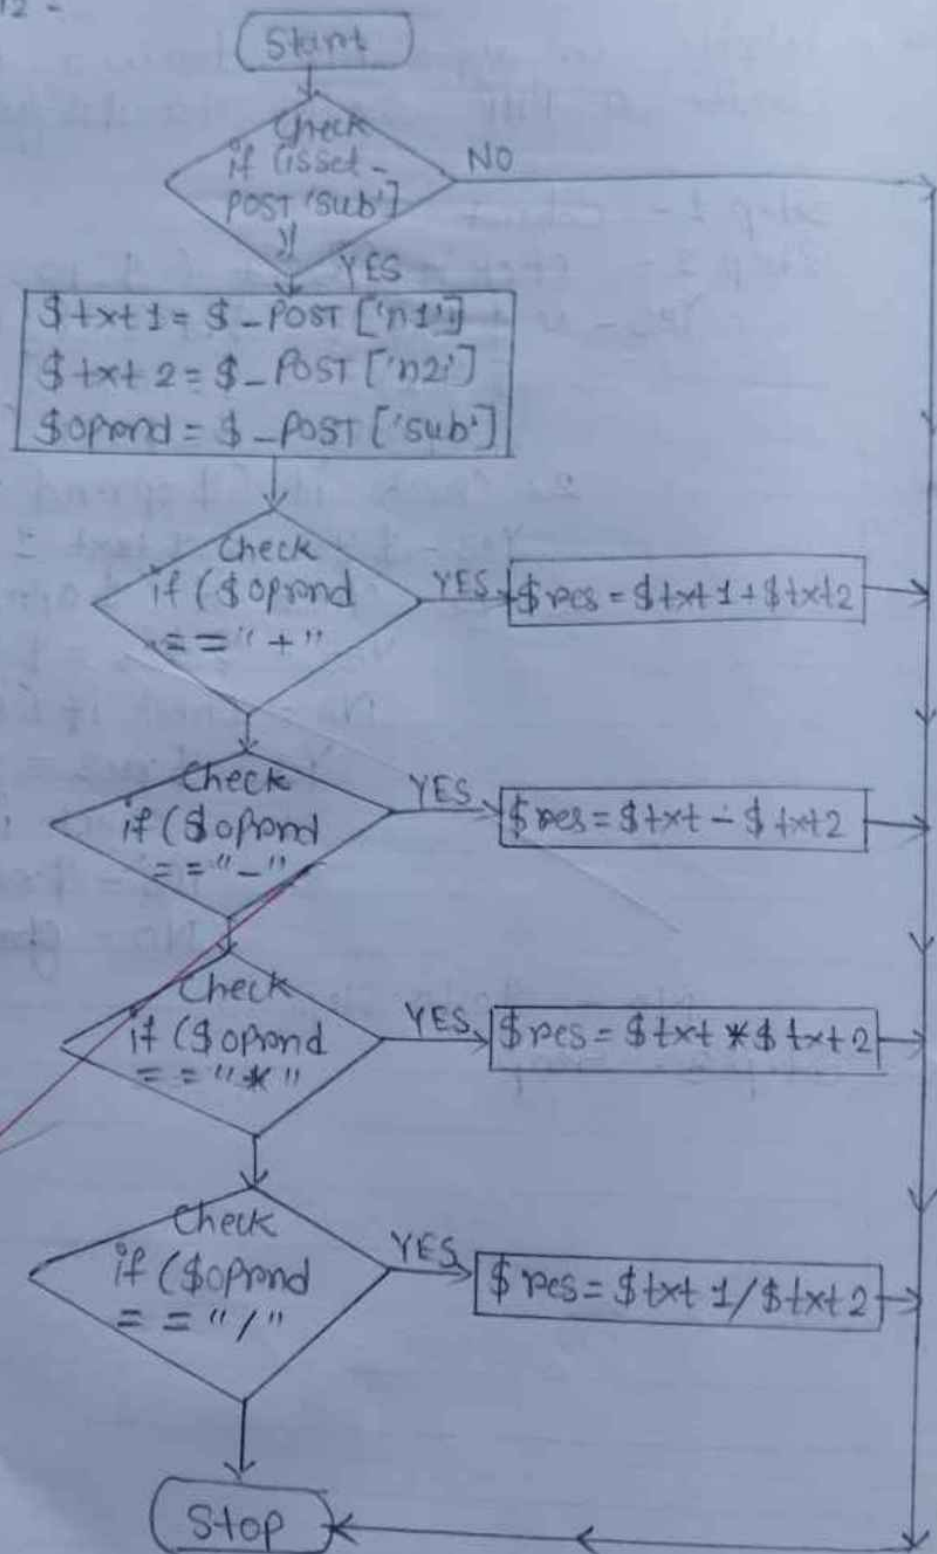 Start
Check
if (isset-
POST 'sub']
)!
NO
YES
$txt1 = $-POST ['n1']
$txt 2 = $-POST ['n2']
$oprnd = $-POST ['sub']
Check
if ($oprnd
== "+"
YES
$res = $txt1+$txt2
Check
if ($oprnd
== "-"
YES
$res = $txt - $txt2
Check
if ($oprnd
== "*"
YES
$res = $txt * $txt2
Check
if ($oprnd
== "/"
YES
$res = $txt 1/$txt2
Stop